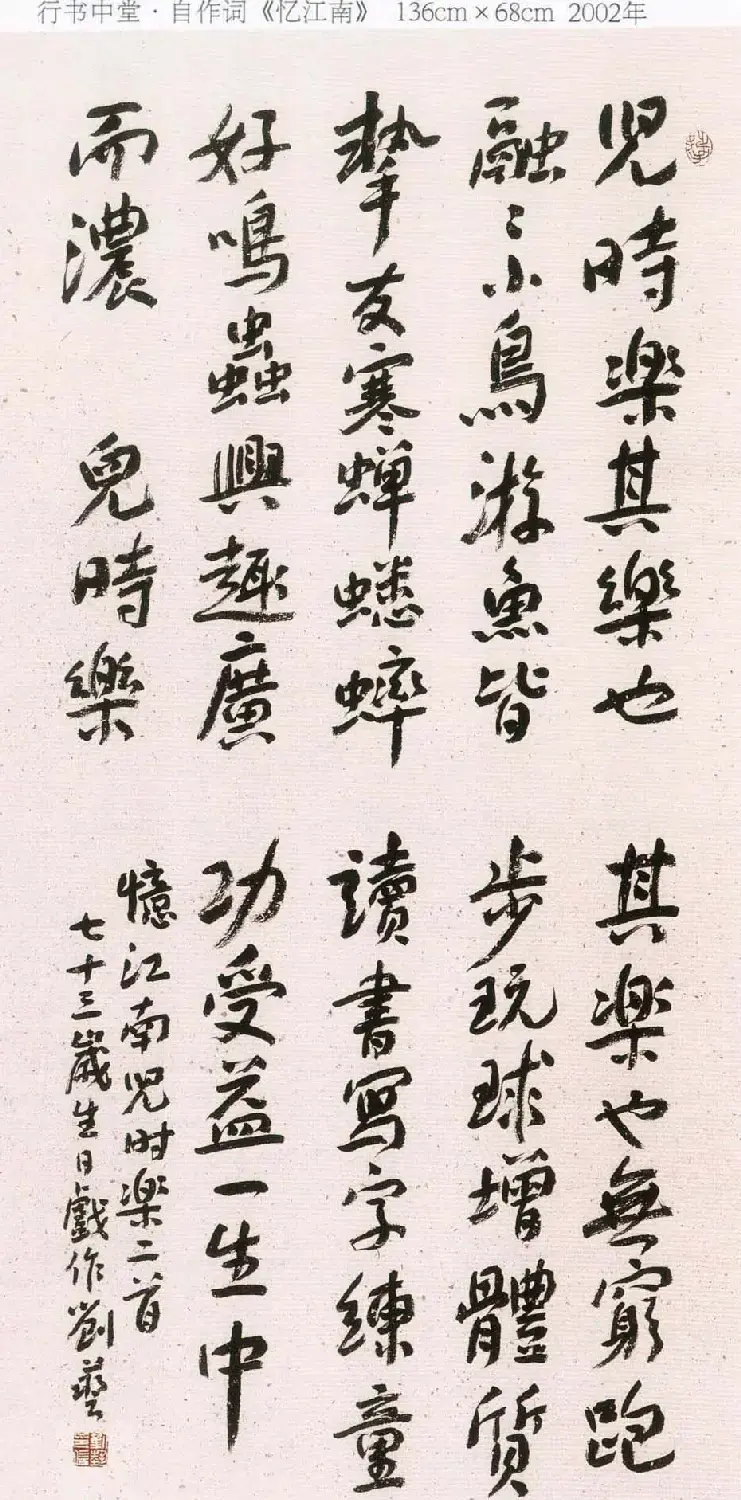 行书中堂·自作词《忆江南》 136cm×68cm 2002年
児時楽其樂也
融〻小鳥游魚皆
摯友寒蟬蟋蟀
好鳴蟲興趣廣
而濃 兒時樂
其楽也無窮跑
步玩球增體質
讀書寫字練童
功受益一生中
憶江南児时楽二首
七十三歲生日戲作劉藝